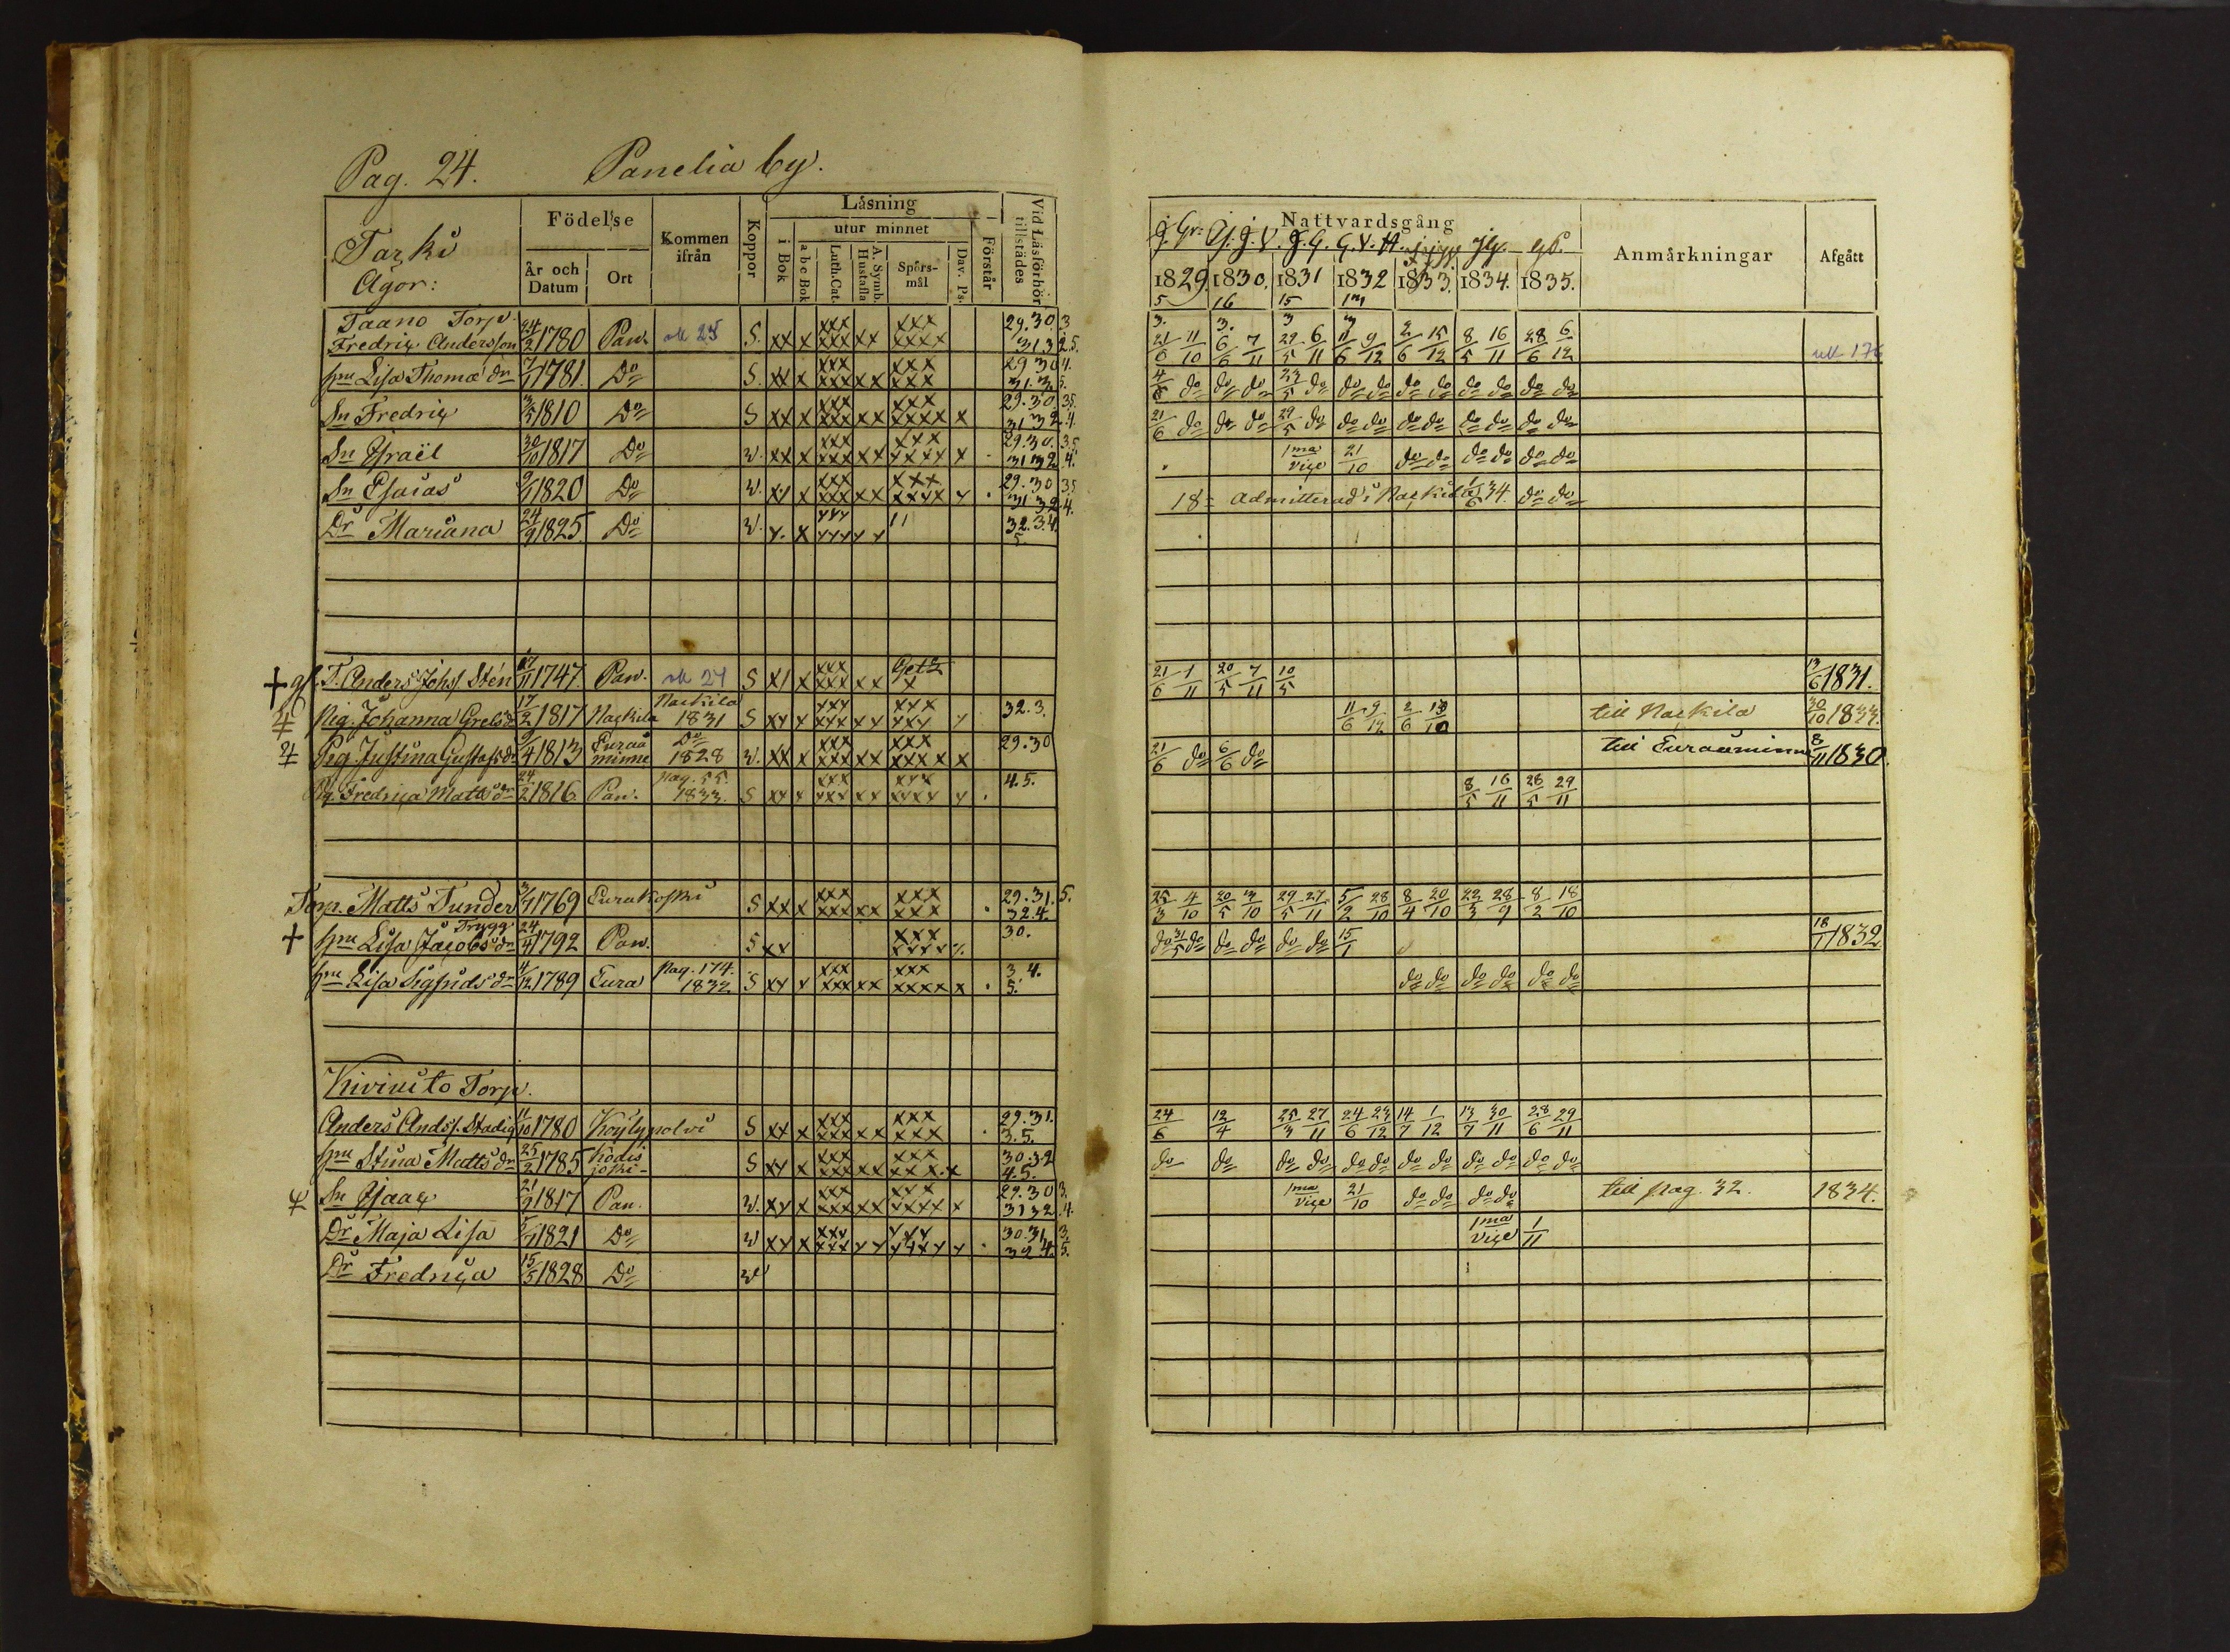 Pag. 24. Panelia by.
Tarki
Ägor:
Födelse
År och Datum
Ort
Kommen ifrån
Koppor
Läsning
i Bok
utur minnet
a b c Bok
Luth. Cat.
A. Symb. Hustafla
Spörsmål
Dav. Ps.
Förstår
Vid Läsförhör tillstädes
Nattvardsgång
1829. 1830. 1831 1832 1833. 1834. 1835.
Anmärkningar
Afgått
5 16 15
Taano Torp.
Fredric Andersson 24/2 1780 Pan. S. xx x xxx xxx xx xxx xxxx 29.30.3 31 3 2.5. 21/6 11/10 6/6 7/11 29/5 6/11 11/6 9/12 2/6 15/12 8/5 16/11 28/6 6/12
hu Lisa Thomæ dr 7/11 1781. Do S. xx x xxx xxx xx xxx xxx 29 30 4. 31. 3 5. 4/6 do do do 23/5 do do do do do do do do do
Sn Fredric 3/3 1810 Do S xx x xxx xxx xx xxx xxxx x 29.30.35. 31 32.4. 21/6 do do do 29/5 do do do do do do do do do
Sn Israël 30/10 1817 Do W. xx x xxx xxx xx xxx xxxx x 29.30.3.5 31 32.4. 1ma vice 21/10 do do do do do do
Sn Esaias 9/1 1820 Do W. xx x xxx xxx xx xxx xxxx x 29.30 35. 31 32.4. 18 admitterad i Nackila 1/6 34. do do
Dr Mariana 24/9 1825 Do W. x. x xxx xxx x x 11 32.3.4. 5.
T. Anders Johss. Stén 17/11 1747. Pan. S x1 x xxx xxx xx x 21/6 1/11 20/5 7/11 10/5 13/6 1831.
Pig. Johanna Grels dr 17/2 1817 Nackila Nackila 1831 S xx x xxx xxx xx xxx xxx x 32.3. 11/6 9/12 2/6 till Nackila 30/10 1833.
Pig. Justina Gustafs dr 9/4 1813 Euraå minne Do 1828 W. xx x xxx xxx xx xxx xxxx x 29.30 21/6 do 6/6 do till Euraåminne 8/11 1830.
Pig. Fredrica Matts dr 24/2 1816 Pan. pag. 55. 1833. S xx x xxx xxx xx xxx xxxx x 4.5. 8/5 16/11 28/5 29/11
Torp. Matts Tunder 3/7 1769 Eurakoski S xx x xxx xxx xx xxx xxx 29.31.5. 32.4. 25/3 4/10 20/5 3/10 29/5 27/11 5/2 28/10 8/4 20/10 22/3 28/9 8/2 18/10
Trygg
hu Lisa Jacobs dr 24/4 1792 Pan. S xx xxx xxxx 30. do 31/5 do do do do do 15/1 18/1 1832
hu Lisa Sigfrids dr 4/12 1789 Eura pag. 174. 1832 S xx x xxx xxx xx xxx xxxx x 3 4. 5. do do do do do do
Kiviniito Torp.
Anders Andss. Stadig 11/10 1780 Köylypolvi S xx x xxx xxx xx xxx xxx 29.31. 3.5. 24/6 12/4 25/3 27/11 24/6 23/12 14/7 1/12 13/7 30/11 28/6 29/11
hu Stina Matts dr 25/2 1785 Kodis joki S xx x xxx xxx xx xxx xxx x 30.32 4.5. do do do do do do do do do do do do
Sn Isaac 21/9 1817 Pan. W. xx x xxx xxx xx xxx xxxx x 29.30 3. 31 32.4. 1ma vice 21/10 do do do do till pag. 32. 1834.
Dr Maja Lisa 5/1 1821 Do W xx x xxx xxx xx xxx xxxx x 30.31.3. 32.4.5. 1ma vice 1/11
Dr Fredrica 15/5 1828 Do W